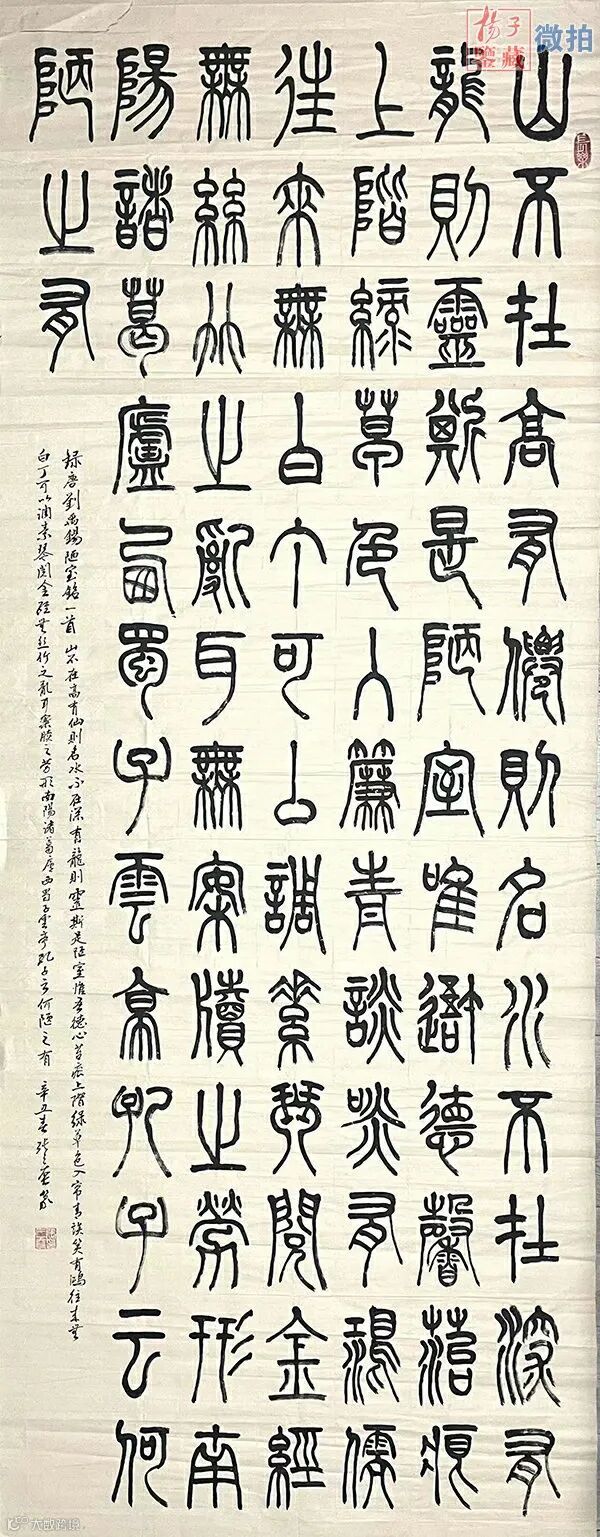 山不在高有僊則名水不在深有
龍則靈斯是陋室唯吾德馨菭痕
上階綠草色入簾青談笑有鴻儒
往來無白丁可以調素琴閱金經
無絲竹之亂耳無案牘之勞形南
陽諸葛廬西蜀子雲亭孔子云何
陋之有
録唐劉禹錫陋室銘一首 山不在高有仙則名水不在深有龍則靈斯是陋室惟吾德心苔痕上階緑草色入帘青談笑有鴻往来無
白丁可以调素琴閲金經無丝竹之乱耳案牍之劳形南陽诸葛庐西蜀子雲亭孔子云何陋之有 辛丑春張
楊子鑒藏 微拍
大数跨境